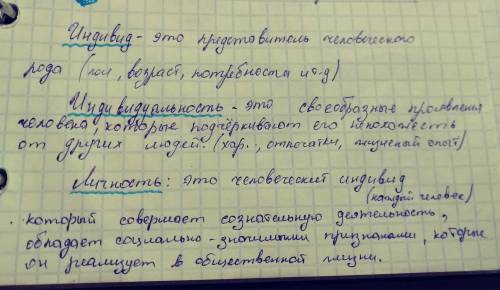 Индивид - это представитель человеческого
рода (пол, возраст, потребности и т.д)
Индивидуальность - это своеобразные проявления
человека, которые подчёркивают его непохожесть
от других людей. (хар., отпечатки, жизненый опыт)
Личность: это человеческий индивид
(каждый человек)
который совершает сознательную деятельность,
обладает социально-значимыми признаками, которые
он реализует в общественной жизни.